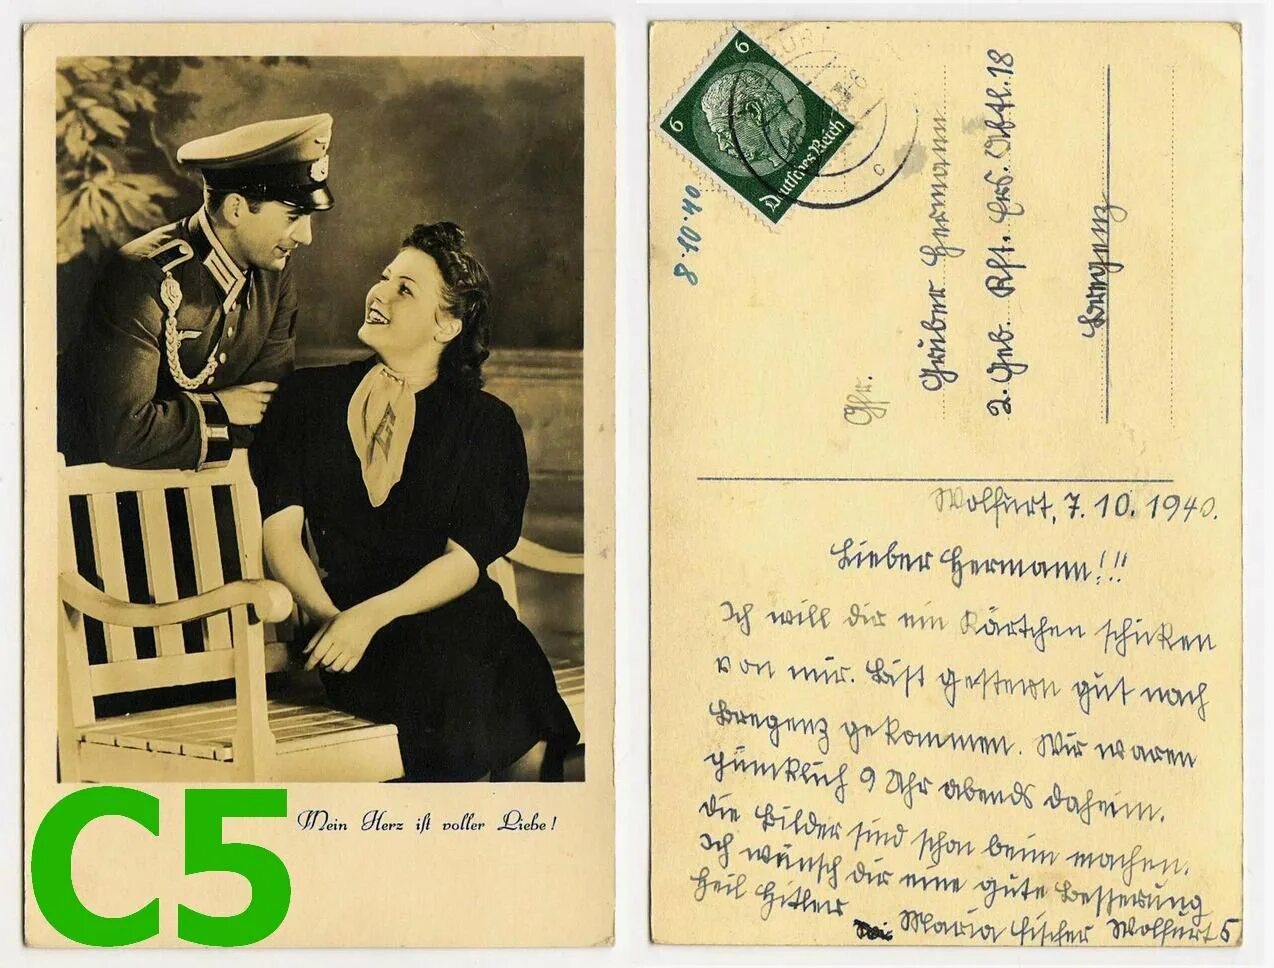 C5
Mein Herz ist voller Liebe!
6
6
Deutsches Reich
C
8.10.40
Gfr.
Gruber Hermann
2. Geb. Kft. Ers. Abtl. 18
Bregenz
Wolfurt, 7.10.1940.
Lieber Hermann!!!
Ich will dir ein Kärtchen schicken
von mir. Bist gestern gut nach
Bregenz gekommen. Wir waren
pünklich 9 Uhr abends daheim.
die Bilder sind schon beim machen.
Ich wünsch dir eine gute Besserung
Heil Hitler
Maria Fischer Wolfurt 5